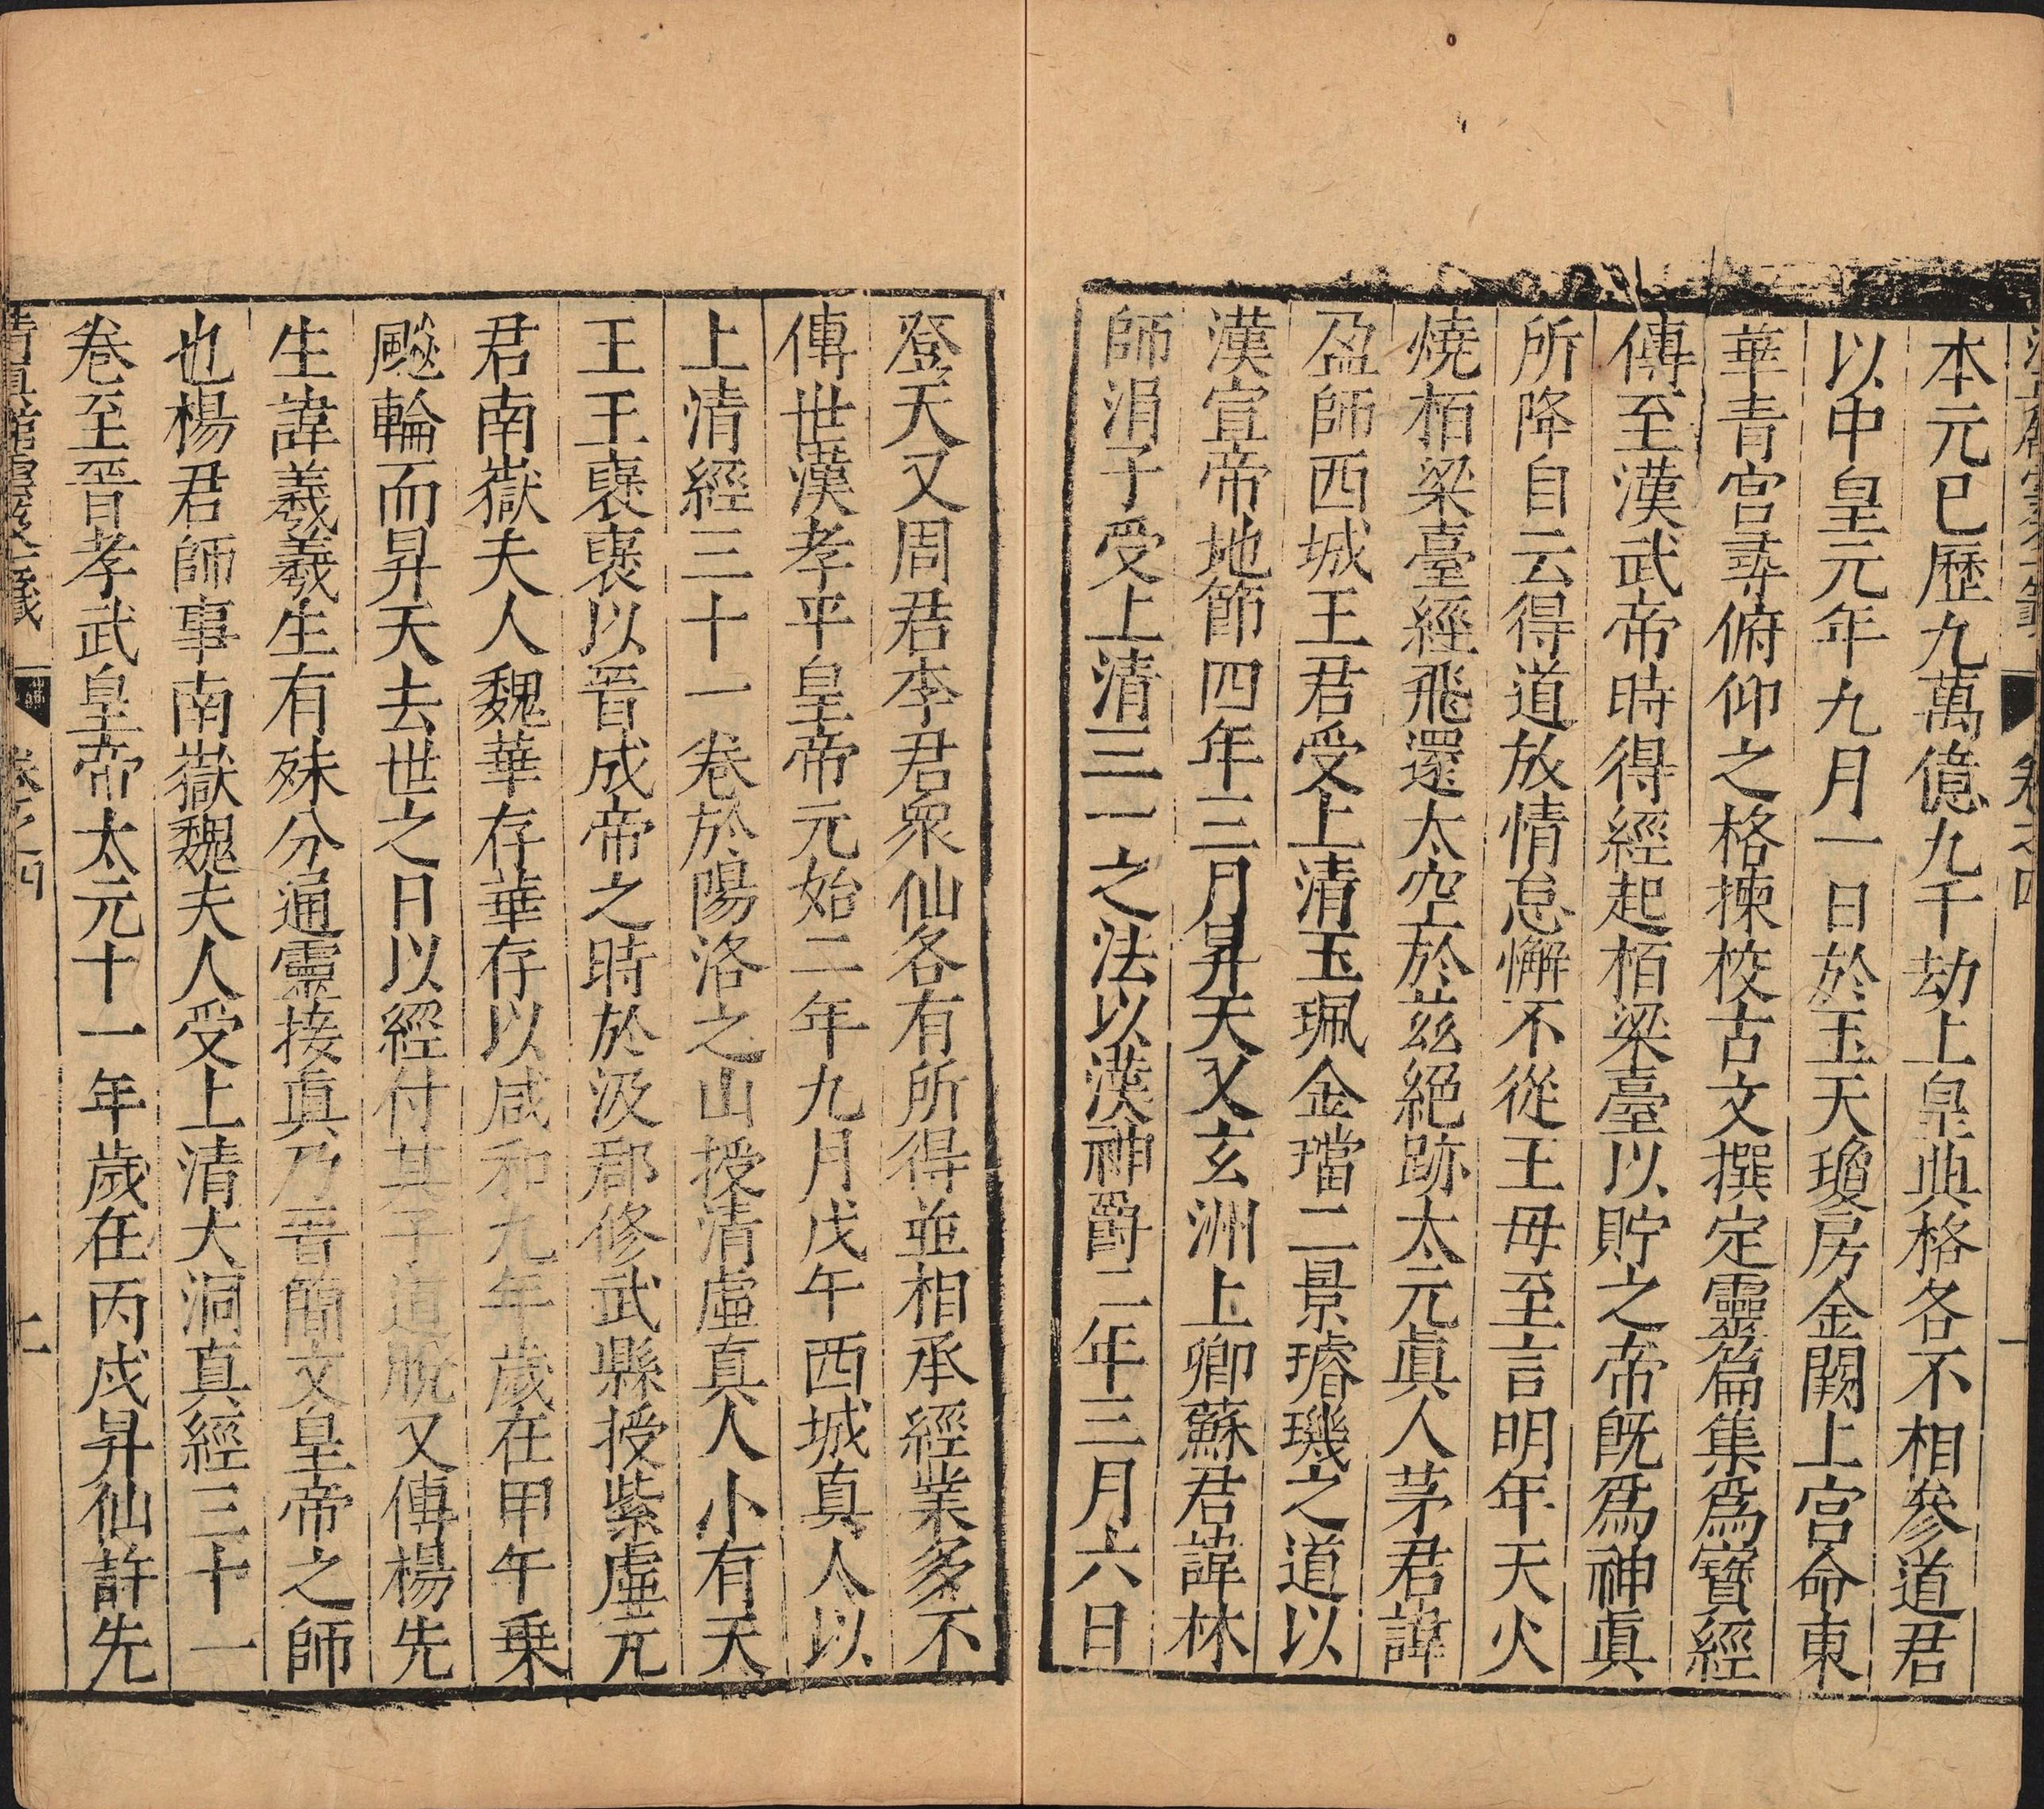 卷之四
一
本元巳歷九萬億九千劫上皇典格各不相參道君
以中皇元年九月一日於玉天瓊房金闕上宮命東
華青宮尋俯仰之格揀校古文撰定靈篇集爲寶經
傳至漢武帝時得經起栢梁臺以貯之帝旣爲神眞
所降自云得道放情怠懈不從王毋至言明年天火
燒栢梁臺經飛還太空於茲絕跡太元眞人茅君諱
盈師西城王君受上清玉珮金璫二景璿璣之道以
漢宣帝地節四年三月昇天又玄洲上卿蘇君諱林
師涓子受上清三一之法以漢神爵二年三月六日
登天又周君李君衆仙各有所得並相承經業多不
傳世漢孝平皇帝元始二年九月戊午西城真人以
上清經三十一卷於陽洛之山授清虛真人小有天
王王褒褒以晉成帝之時於汲郡修武縣授紫虛元
君南嶽夫人魏華存華存以咸和九年歲在甲午乗
飈輪而昇天去世之日以經付其子道脫又傳楊先
生諱羲羲生有殊分通靈接真乃晉簡文皇帝之師
也楊君師事南嶽魏夫人受上清大洞真經三十一
卷至晉孝武皇帝太元十一年歲在丙戌昇仙許先
清真館雲笈七籖
卷之四
二